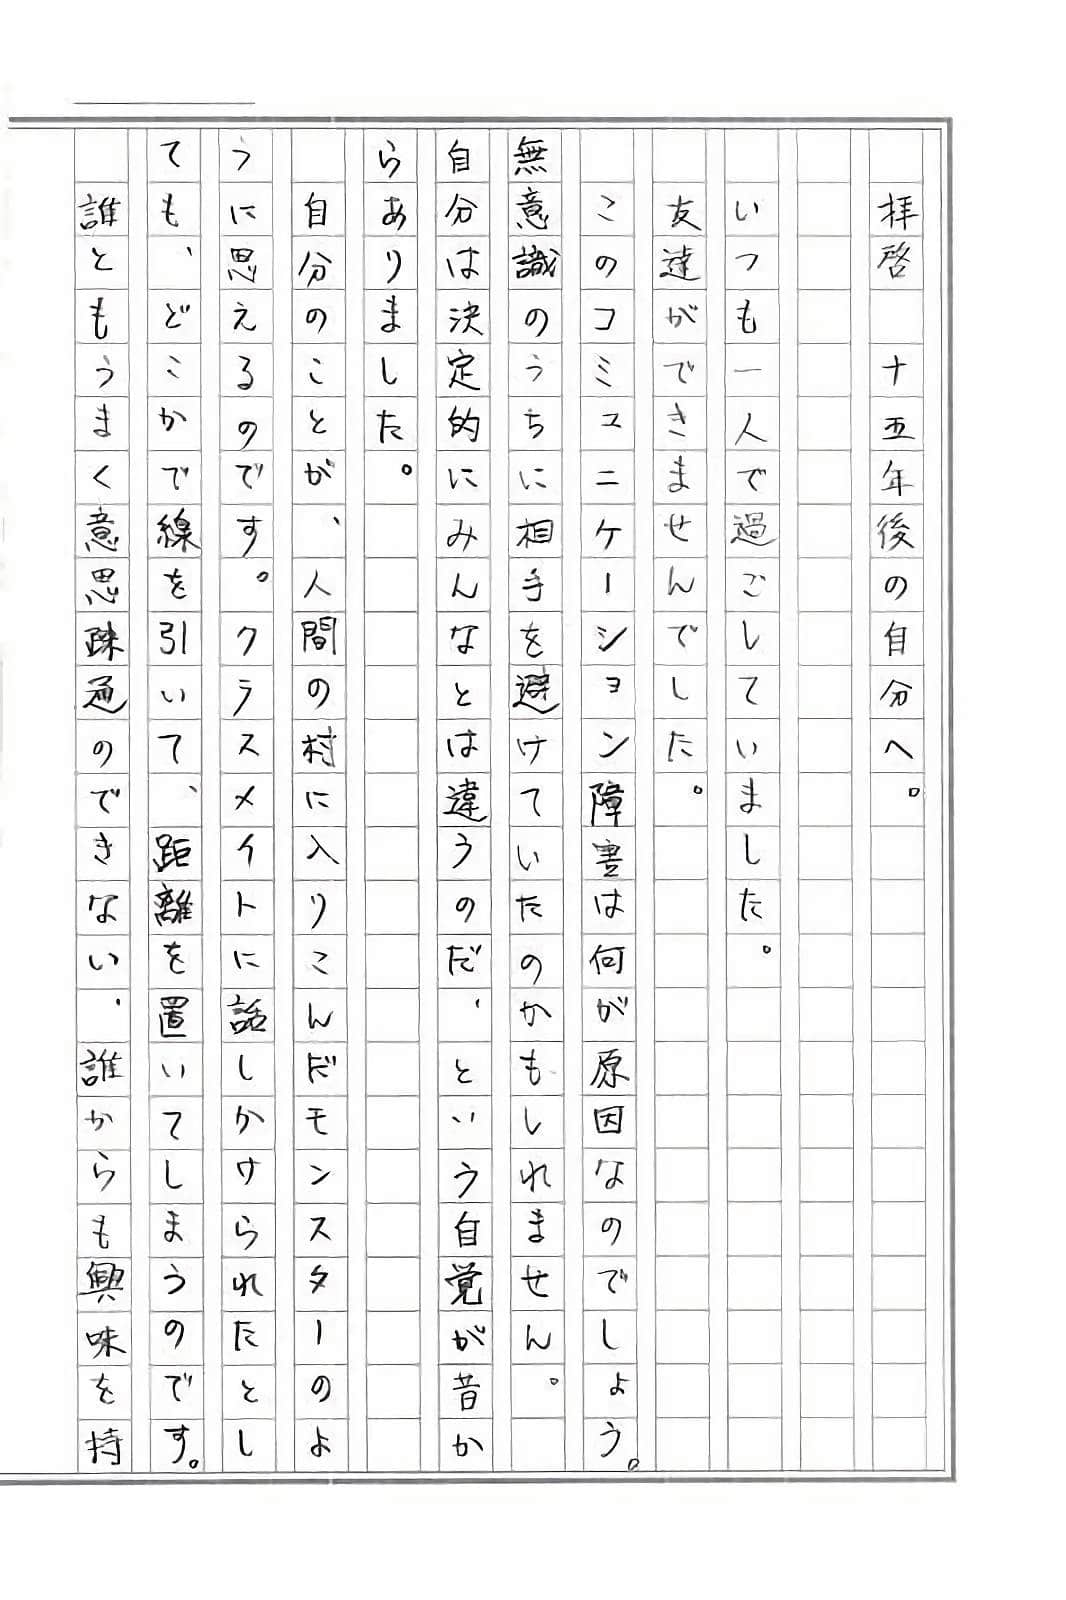 拝啓　十五年後の自分へ。
いつも一人で過ごしていました。
友達ができませんでした。
このコミュニケーション障害は何が原因なのでしょう。
無意識のうちに相手を避けていたのかもしれません。
自分は決定的にみんなとは違うのだ、という自覚が昔か
らありました。
自分のことが、人間の村に入りこんだモンスターのよ
うに思えるのです。クラスメイトに話しかけられたとし
ても、どこかで線を引いて、距離を置いてしまうのです。
誰ともうまく意思疎通のできない、誰からも興味を持